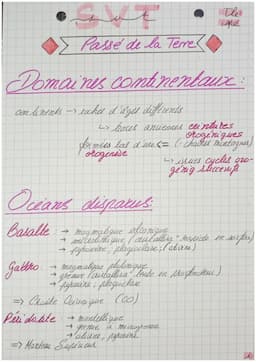 SVT
Passé de la Terre
Domaines continentaux :
continents → roches d'âges différents
↳ traces anciennes ceintures
orogéniques
formées lors d'une (- chaînes montagnes)
orogenèse
↳ issues cycles oro-
géniq successifs
Océans disparus:
Basalte : → magmatique volcanique
→ microlithique (cristallisa° rapide en surface)
→ pyroxène, plagioclase, (olivine)
Gabbro → magmatique plutonique
→ grenue (cristallisa° lente en profondeur)
→ pyroxène, plagioclase
=> Croûte Océanique (CO)
Péridotite → mantellique
→ grenue à microgrenue
→ olivine, pyroxène
=> Manteau Supérieur